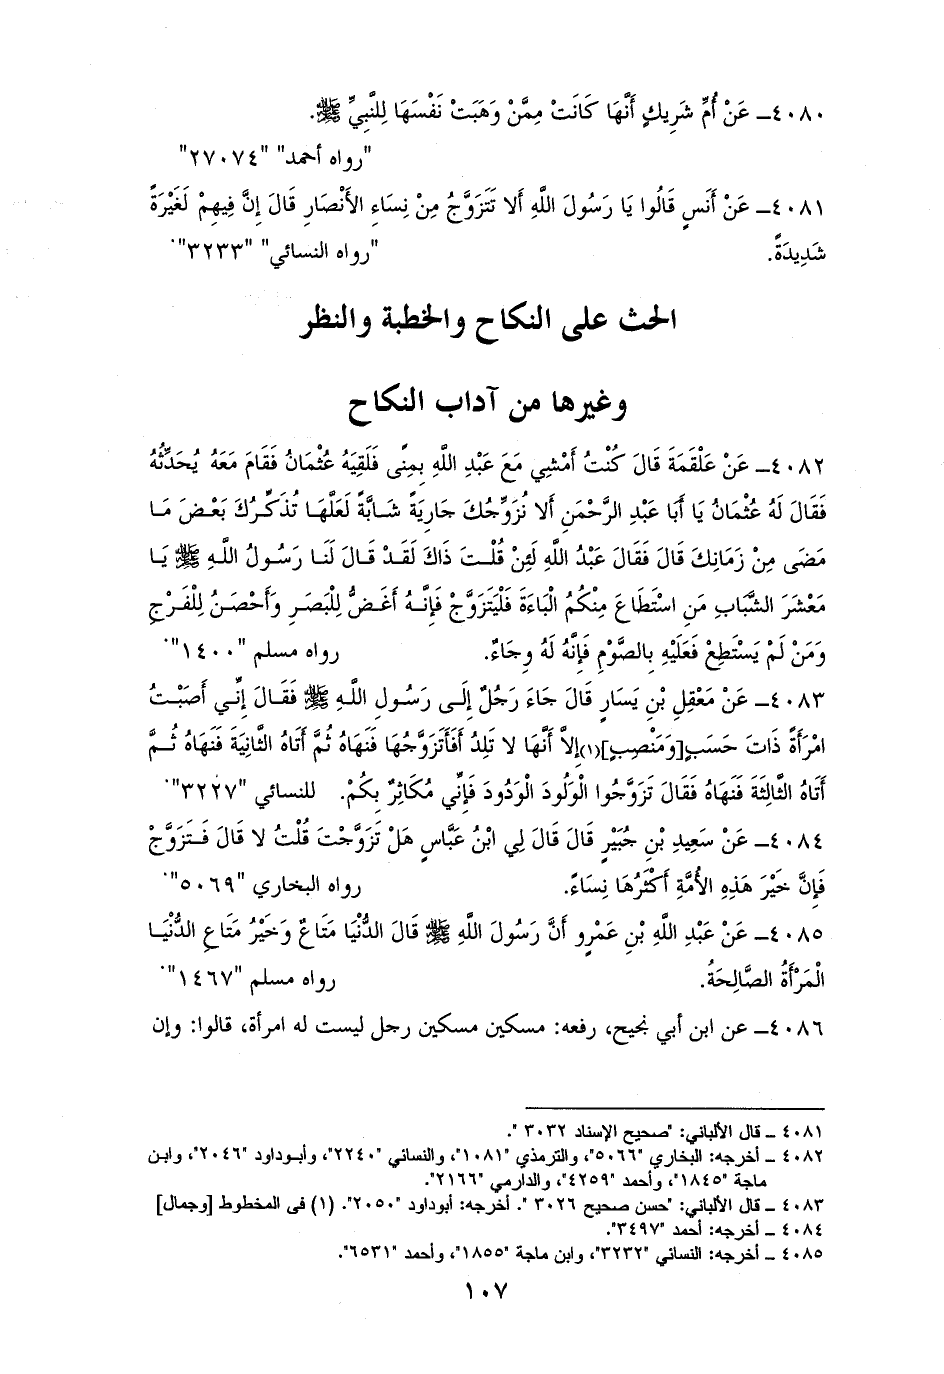 ٤٠٨٠ــ عَنْ أُمِّ شَرِيكٍ أَنَّهَا كَانَتْ مِمَّنْ وَهَبَتْ نَفْسَهَا لِلنَّبِيِّ ﷺ.
"رواه أحمد" "٢٧٠٧٤"
٤٠٨١ــ عَنْ أَنَسٍ قَالُوا يَا رَسُولَ اللَّهِ أَلا تَتَزَوَّجُ مِنْ نِسَاءِ الأَنْصَارِ قَالَ إِنَّ فِيهِمْ لَغَيْرَةً
شَدِيدَةً. "رواه النسائي" "٣٢٣٣".
الحث على النكاح والخطبة والنظر
وغيرها من آداب النكاح
٤٠٨٢ــ عَنْ عَلْقَمَةَ قَالَ كُنْتُ أَمْشِي مَعَ عَبْدِ اللَّهِ بِمِنًى فَلَقِيَهُ عُثْمَانُ فَقَامَ مَعَهُ يُحَدِّثُهُ
فَقَالَ لَهُ عُثْمَانُ يَا أَبَا عَبْدِ الرَّحْمَنِ أَلا نُزَوِّجُكَ جَارِيَةً شَابَّةً لَعَلَّهَا تُذَكِّرُكَ بَعْضَ مَا
مَضَى مِنْ زَمَانِكَ قَالَ فَقَالَ عَبْدُ اللَّهِ لَئِنْ قُلْتَ ذَاكَ لَقَدْ قَالَ لَنَا رَسُولُ اللَّهِ ﷺ يَا
مَعْشَرَ الشَّبَابِ مَنِ اسْتَطَاعَ مِنْكُمُ الْبَاءَةَ فَلْيَتَزَوَّجْ فَإِنَّهُ أَغَضُّ لِلْبَصَرِ وَأَحْصَنُ لِلْفَرْجِ
وَمَنْ لَمْ يَسْتَطِعْ فَعَلَيْهِ بِالصَّوْمِ فَإِنَّهُ لَهُ وِجَاءٌ. رواه مسلم "١٤٠٠".
٤٠٨٣ــ عَنْ مَعْقِلِ بْنِ يَسَارٍ قَالَ جَاءَ رَجُلٌ إِلَى رَسُولِ اللَّهِ ﷺ فَقَالَ إِنِّي أَصَبْتُ
امْرَأَةً ذَاتَ حَسَبٍ[وَمَنْصِبٍ](١)إِلاَّ أَنَّهَا لا تَلِدُ أَفَأَتَزَوَّجُهَا فَنَهَاهُ ثُمَّ أَتَاهُ الثَّانِيَةَ فَنَهَاهُ ثُمَّ
أَتَاهُ الثَّالِثَةَ فَنَهَاهُ فَقَالَ تَزَوَّجُوا الْوَلُودَ الْوَدُودَ فَإِنِّي مُكَاثِرٌ بِكُمْ. للنسائي "٣٢٢٧".
٤٠٨٤ــ عَنْ سَعِيدِ بْنِ جُبَيْرٍ قَالَ قَالَ لِي ابْنُ عَبَّاسٍ هَلْ تَزَوَّجْتَ قُلْتُ لا قَالَ فَتَزَوَّجْ
فَإِنَّ خَيْرَ هَذِهِ الأُمَّةِ أَكْثَرُهَا نِسَاءً. رواه البخاري "٥٠٦٩".
٤٠٨٥ــ عَنْ عَبْدِ اللَّهِ بْنِ عَمْرٍو أَنَّ رَسُولَ اللَّهِ ﷺ قَالَ الدُّنْيَا مَتَاعٌ وَخَيْرُ مَتَاعِ الدُّنْيَا
الْمَرْأَةُ الصَّالِحَةُ. رواه مسلم "١٤٦٧".
٤٠٨٦ــ عن ابن أبي نجيح، رفعه: مسكين مسكين رجل ليست له امرأة، قالوا: وإن
٤٠٨١ ــ قال الألباني: "صحيح الإسناد ٣٠٣٢ ".
٤٠٨٢ ــ أخرجه: البخاري "٥٠٦٦"، والترمذي "١٠٨١"، والنسائي "٢٢٤٠"، وأبوداود "٢٠٤٦"، وابن
ماجة "١٨٤٥"، وأحمد "٤٢٥٩"، والدارمي "٢١٦٦".
٤٠٨٣ ــ قال الألباني: "حسن صحيح ٣٠٢٦ ". أخرجه: أبوداود "٢٠٥٠". (١) فى المخطوط [وجمال]
٤٠٨٤ ــ أخرجه: أحمد "٣٤٩٧".
٤٠٨٥ ــ أخرجه: النسائي "٣٢٣٢"، وابن ماجة "١٨٥٥"، وأحمد "٦٥٣١".
١٠٧